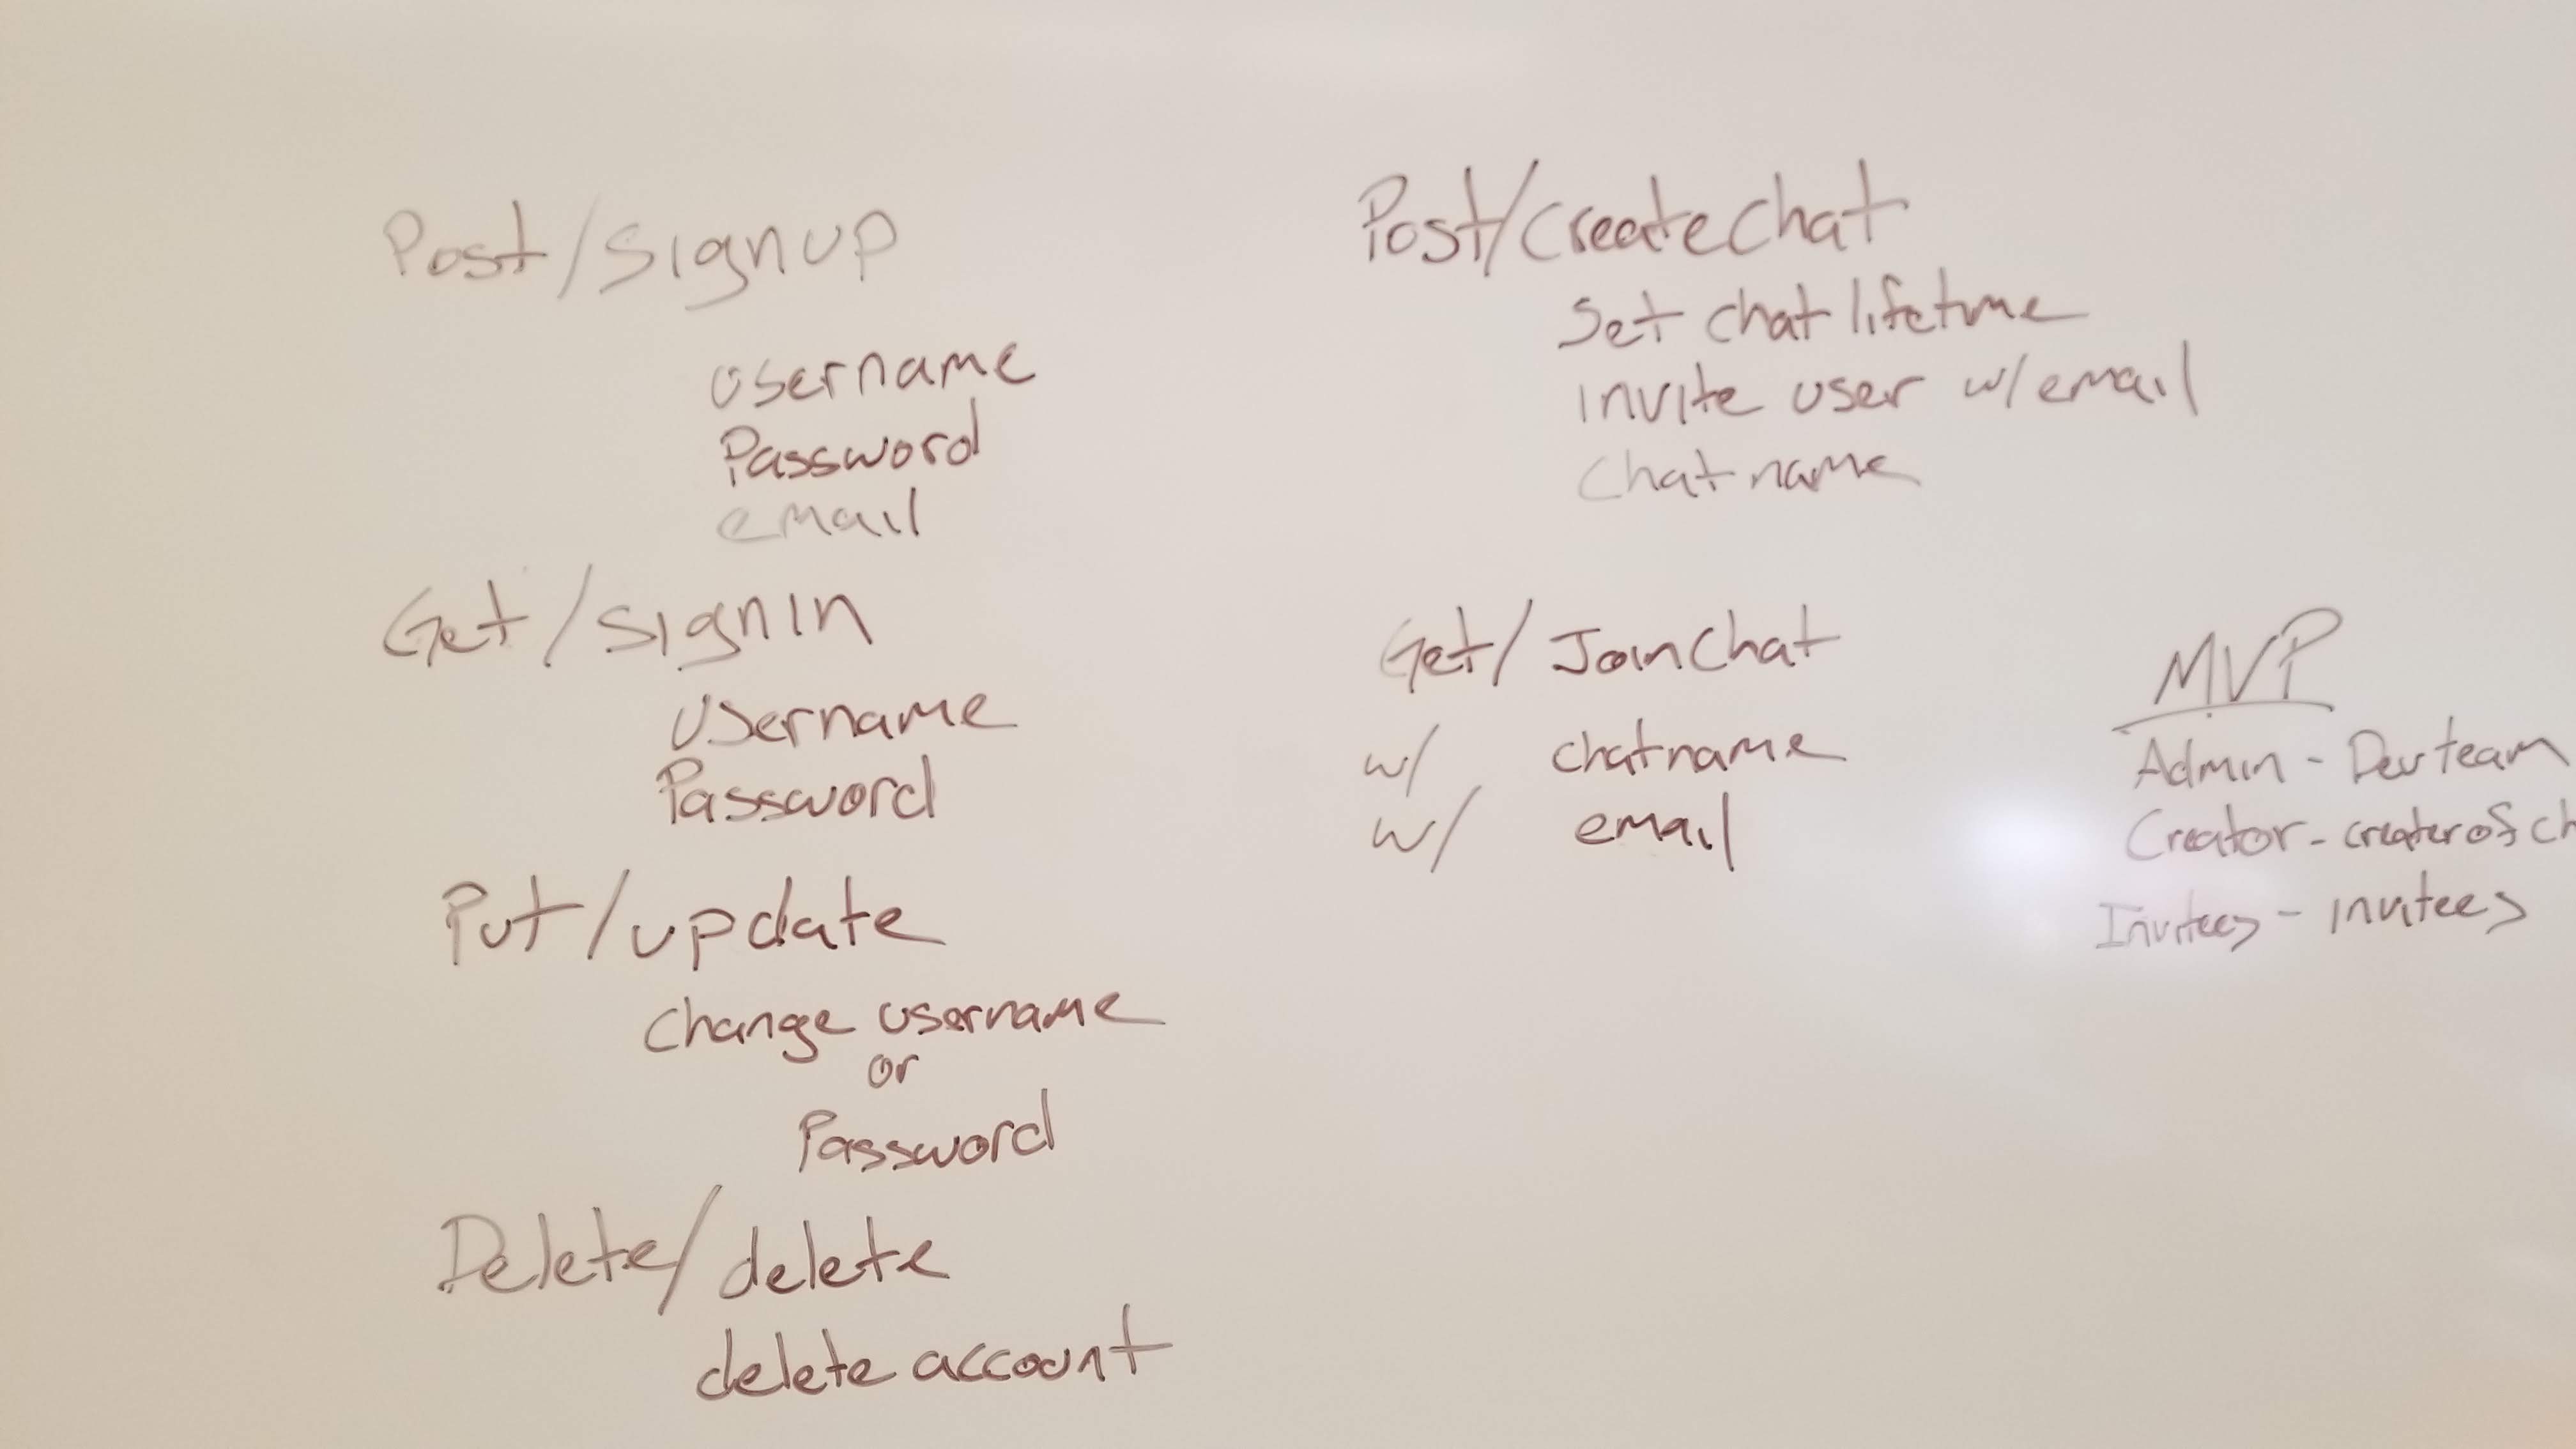 Post/signup
username
Password
email
Get/signin
Username
Password
Put/update
change username
or
Password
Delete/delete
delete account
Post/createchat
Set chat lifetime
invite user w/email
Chatname
Get/JoinChat
w/ chatname
w/ email
MVP
Admin - Devteam
Creator - createrof ch
Invitees - invitees